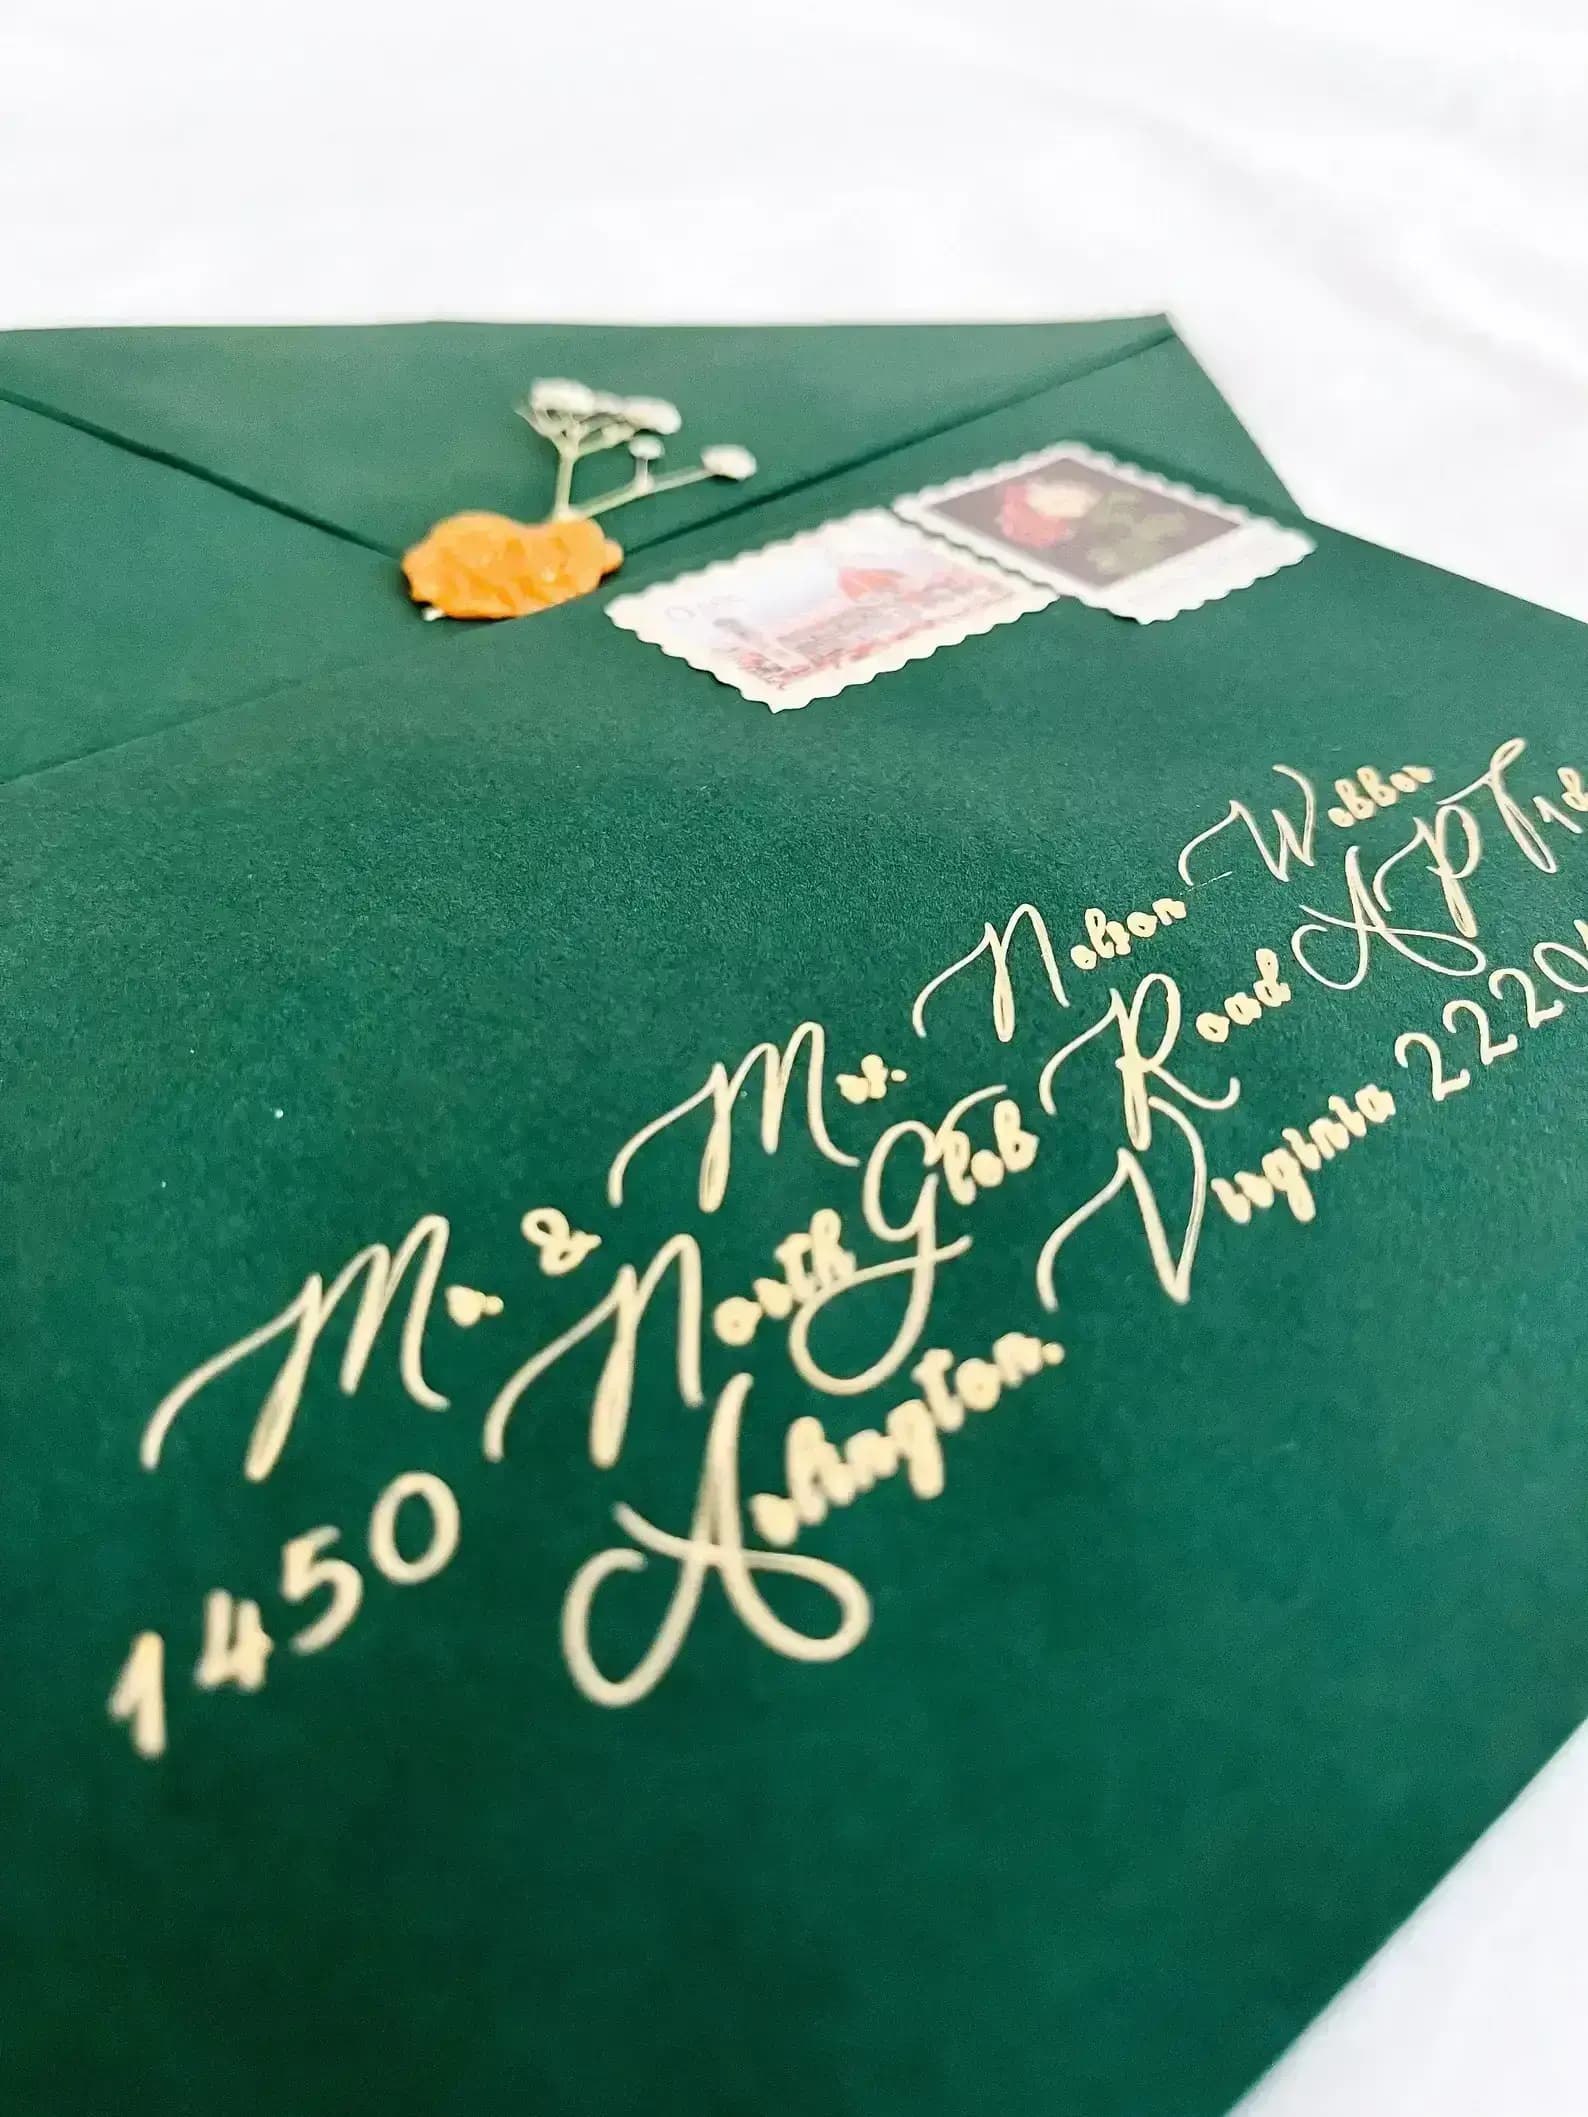 Mr. & Mrs. Nelson Webber
1450 North Gleb Road APT
Arlington. Virginia 220